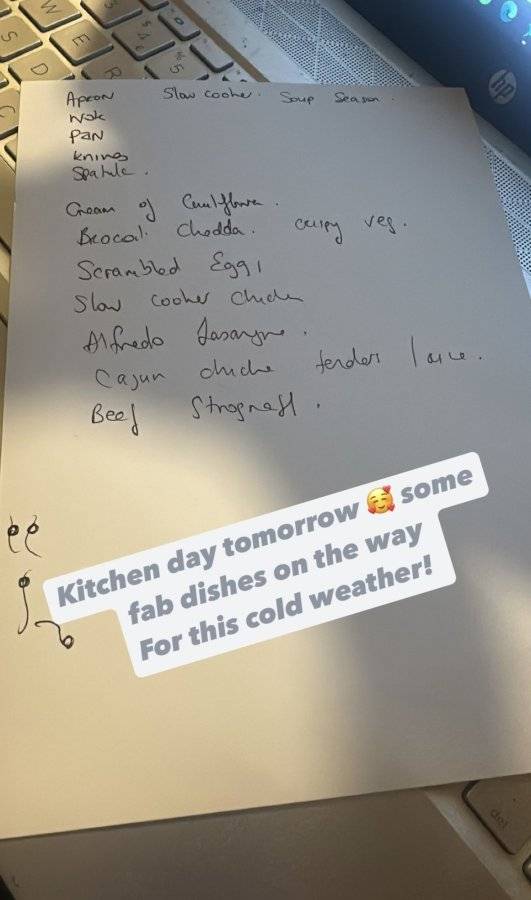 Apron Slow cooker. Soup Season.
Wok
PAN
knives
Spatule.
Cream of Cauliflower.
Brocoli Chedda. Crispy veg.
Scrambled Eggs
Slow cooker Chicken
Alfredo Lasagne.
Cajun chicke tenders
Beef Strognaff.
Kitchen day tomorrow 🥰 some
fab dishes on the way
For this cold weather!
hp
W
E
R
S
D
C
$
4
%
5
del